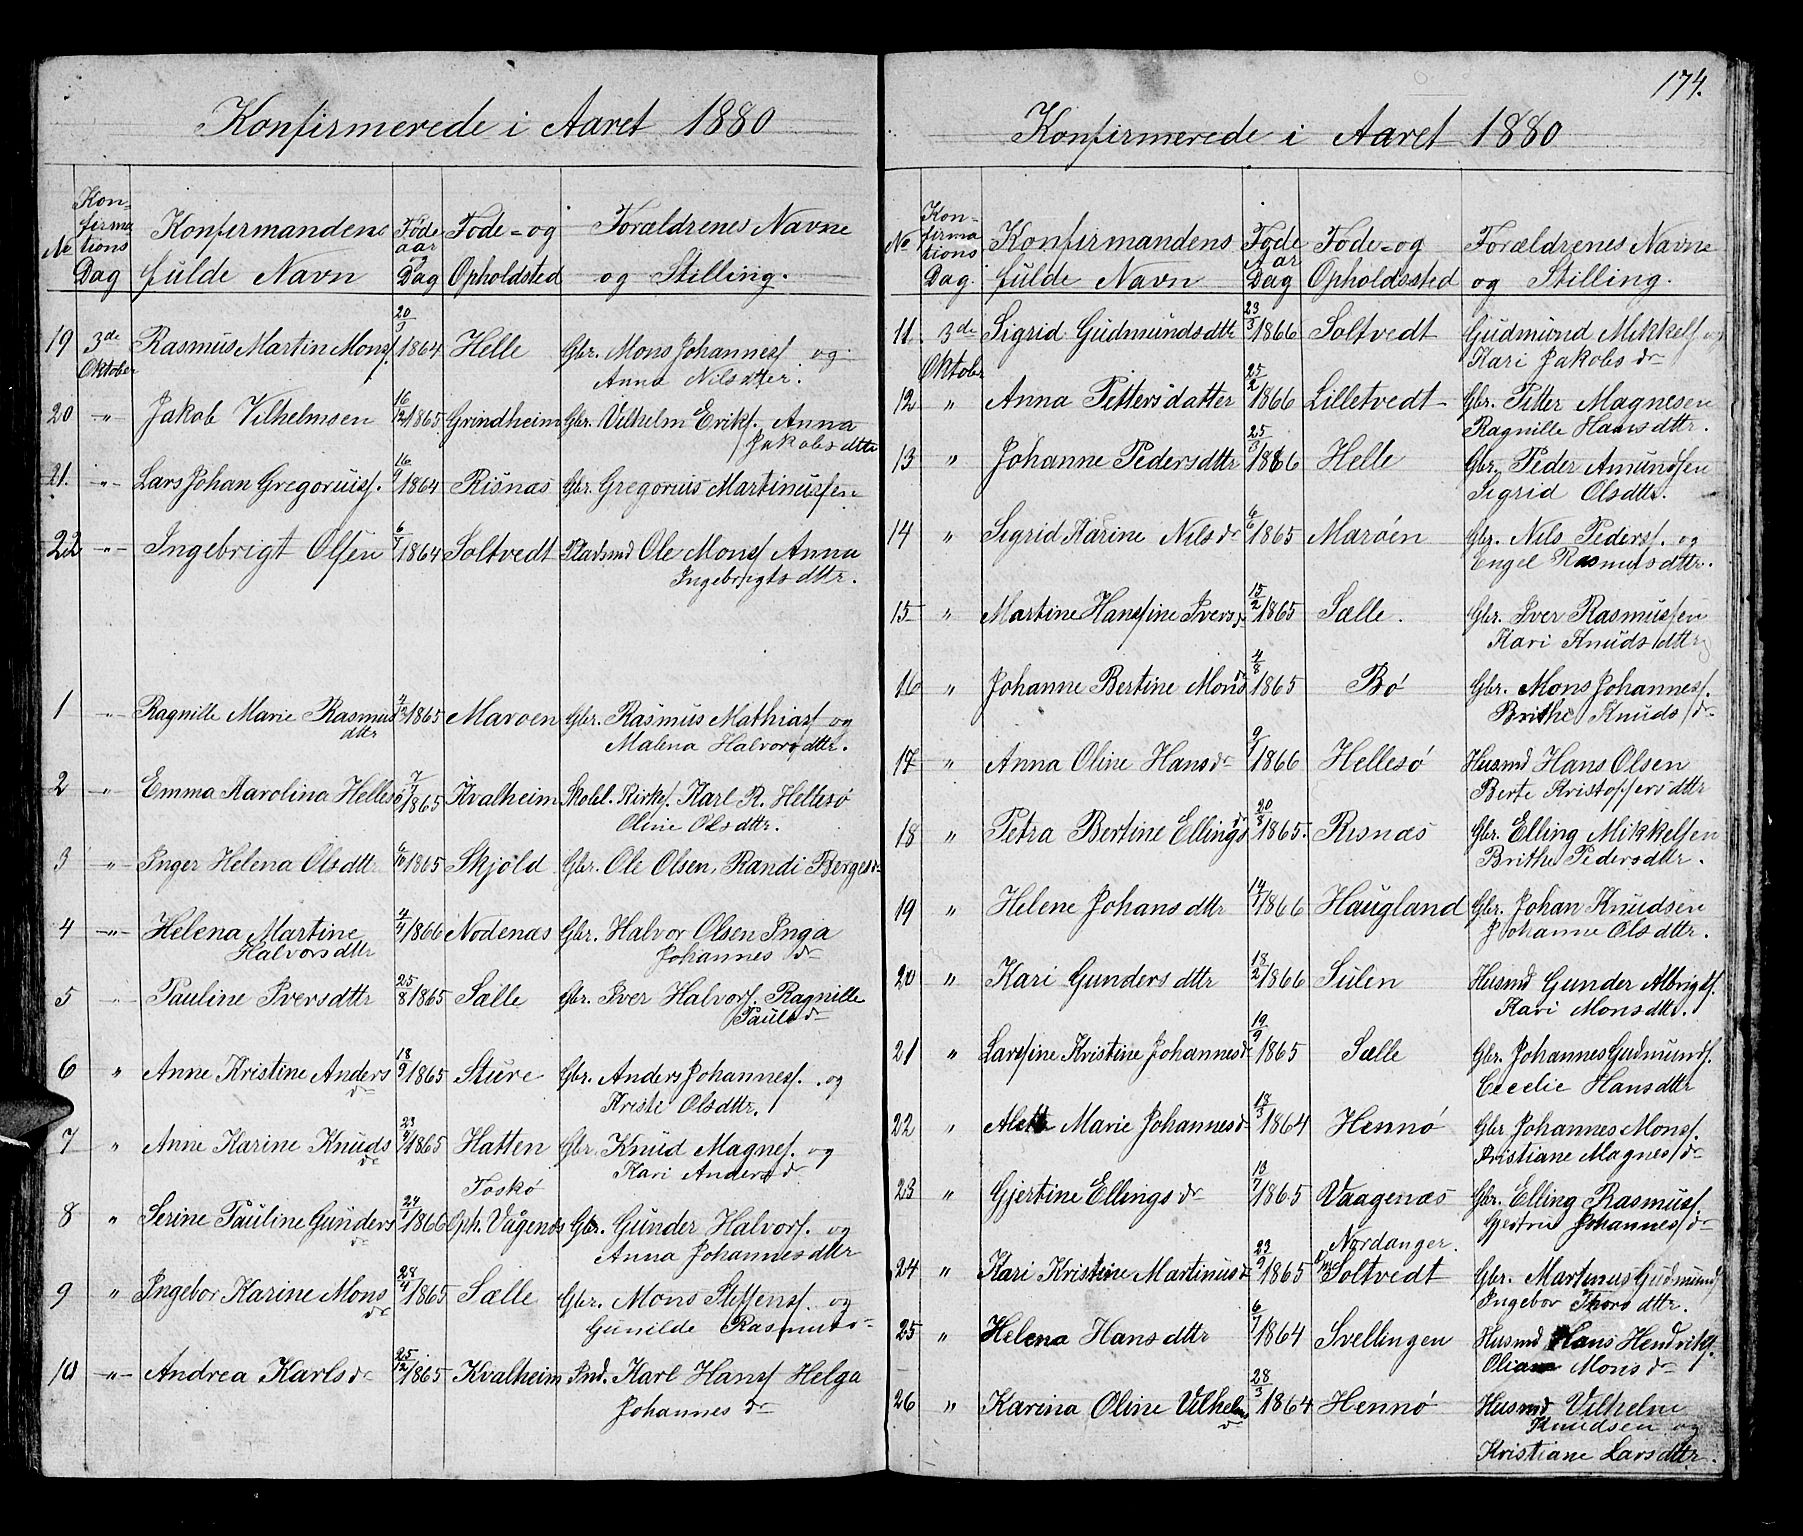 Konfirmerede i Aaret 1880
No
Kon-
firma
tions
Dag
Konfirmandens
fulde Navn
Føde
aar
og
Dag
Føde- og
Opholdsted
Forældrenes Navne
og Stilling.
19 3de Rasmus Martin Monsf. 20/3 1864 Helle Gbr. Mons Johannesf og
Oktober Anna Nilsdtter.
20 -"- Jakob Vilhelmsen 16/12 1865 Grindheim Gbr. Vilhelm Erikf. Anna
Jakobsdttr
21. -"- Lars Johan Gregoriusf. 16/9 1864 Risnæs Gbr. Gregorius Martinussen
22 -"- Ingebrigt Olsen 6/7 1864 Soltvedt Pladsmd Ole Monsf Anna
Ingebrigtsdttr.
1 -"- Ragnille Marie Rasmus 4/3 1865 Marøen Gbr. Rasmus Mathiasf og
dttr Malena Halvorsdttr.
2 " Emma Karolina Hellesø 7/7 1865 Kvalheim Skolel. Kirkes. Karl R. Hellesø
Oline Olsdttr.
3 " Inger Helena Olsdttr 1865 Skjold Gbr. Ole Olsen, Randi Bergesdr
4 -"- Helena Martine 4/4 1866 Nodenæs Gbr. Halvor Olsen Inga
Halvorsdttr Johannesdr
5 " Pauline Iversdttr 25/8 1865 Sælle Gbr. Iver Halvorf. Ragnille
Paulsdr
6 " Anne Kristine Anders 18/9 1865 Sture Gbr. Anders Johannesf. og
dr Kristi Olsdttr.
7 " Anne Karine Knuds 23/4 1865 Hatten Gbr. Knud Magnesf. og
dr Kari Andersdr
Toskø
8 " Serine Pauline Gunders 24/1 1866 Oph. Vågenæs Gbr. Gunder Halvorf. og
dr Anna Johannesdttr
9 " Ingebor Karine Mons 28/4 1865 Sælle Gbr. Mons Steffensf. og
dr Gunilde Rasmusdr
10 -"- Andrea Karlsdr 25/12 1865 Kvalheim Ind. Karl Hansf Helga
Johannesdr
174.
Konfirmerede i Aaret 1880
No
Kon-
firma
tions
Dag.
Konfirmandens
fulde Navn
Føde
Aar
Dag
Føde- og
Opholdssted
Forældrenes Navne
og Stilling.
11 3de Sigrid Gudmundsdttr 23/3 1866 Soltvedt Gudmund Mikkelf og
Oktober Kari Jakobsdr
12 " Anna Pettersdatter 25/2 1866 Lilletvedt Gbr. Petter Magnesen
Ragnille Hansdttr.
13 " Johanne Pedersdttr 25/3 1866 Helle Gbr. Peder Amundsen
Sigrid Olsdttr.
14 " Sigrid Karine Nilsdr 6/6 1865 Marøen Gbr. Nils Pedersf. og
Engel Rasmusdttr.
15 " Martine Hansine Iversdr 15/2 1865 Sælle. Gbr. Iver Rasmussen
Kari Knudsdttr
16 " Johanne Bertine Monsdr 4/8 1865 Bø Gbr. Mons Johannesf.
Brithe Knudsdr
17 " Anna Oline Hansdr 9/1 1866 Hellesø Husmd Hans Olsen
Berte Kristoffersdttr
18 " Petra Bertine Ellingsdr 20/3 1865. Risnæs Gbr. Elling Mikkelsen
Brithe Pedersdttr.
19 " Helene Johansdttr 14/1 1866 Haugland Gbr. Johan Knudsen
Johanne Olsdttr.
20 " Kari Gundersdttr 18/2 1866 Sulen Husmd Gunder Albrigtf.
Kari Monsdttr.
21 " Larsine Kristine Johannesdr 19/9 1865 Sælle Gbr. Johannes Gudmundf.
Cecelie Hansdttr
22 " Alette Marie Johannesdr 18/3 1864 Hennø Gbr Johannes Monsf.
Kristiane Magnesdr
23 " Gjertine Ellingsdr 13/7 1865 Vaagenæs Gbr. Elling Rasmusf.
Gjertrie Johannesdr
Nordanger.
24 " Kari Kristine Martinusdr 23/9 1865 Soltvedt Gbr. Martinus Gudmundf
Ingebor Thorsdttr.
25 " Helena Hansdttr 6/7 1864 Svellingen Husmd Hans Hendrikf.
Oliana Monsdr
26 " Karina Oline Vilhelms 28/3 1864 Hennø Husmd Vilhelm
dr Knudsen og
Kristiane Larsdttr.